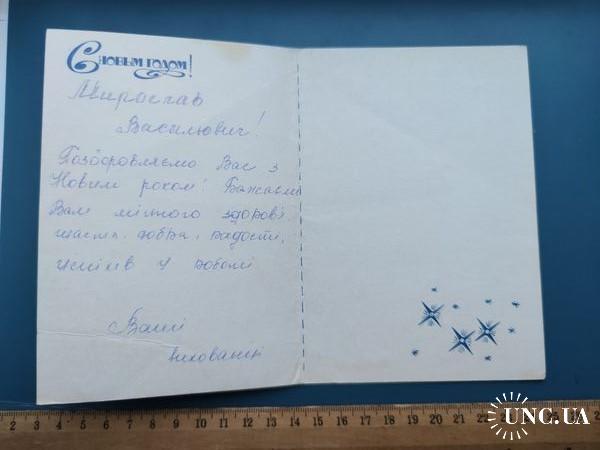 С НОВЫМ ГОДОМ!
Мирослав
Васильович!
Поздоровляємо Вас з
Новим роком! Бажаємо
Вам міцного здоров'
щастя, добра, радості,
успіхів у роботі
Ваші
вихованці
2 3 4 5 6 7 8 9 10 11 12 13 14 15 16 17 18 19 20 21 22
UNC.UA